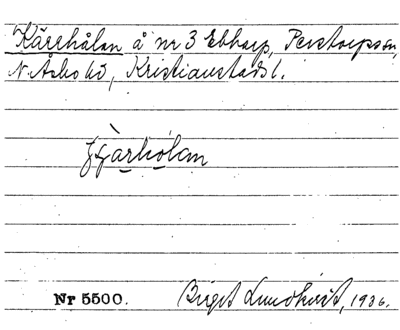 Kärrhålan å nr 3 Ebbarp, Perstorps sn,
N. Åsbo hd, Kristianstads l.
Nr 5500. Birgit Lundkvist, 1936.